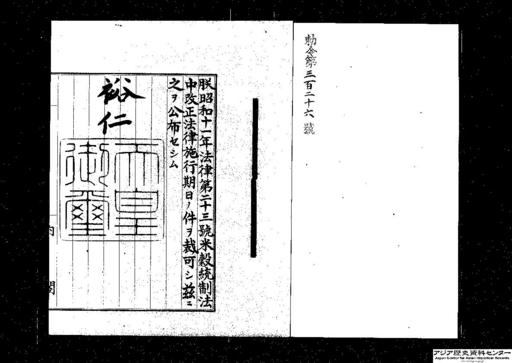 勅令第三百二十六號
朕昭和十一年法律第二十三號米穀統制法
中改正法律施行期日ノ件ヲ裁可シ茲ニ
之ヲ公布セシム
裕仁
天皇
御璽
内閣
アジア歴史資料センター
Japan Center for Asian Historical Records